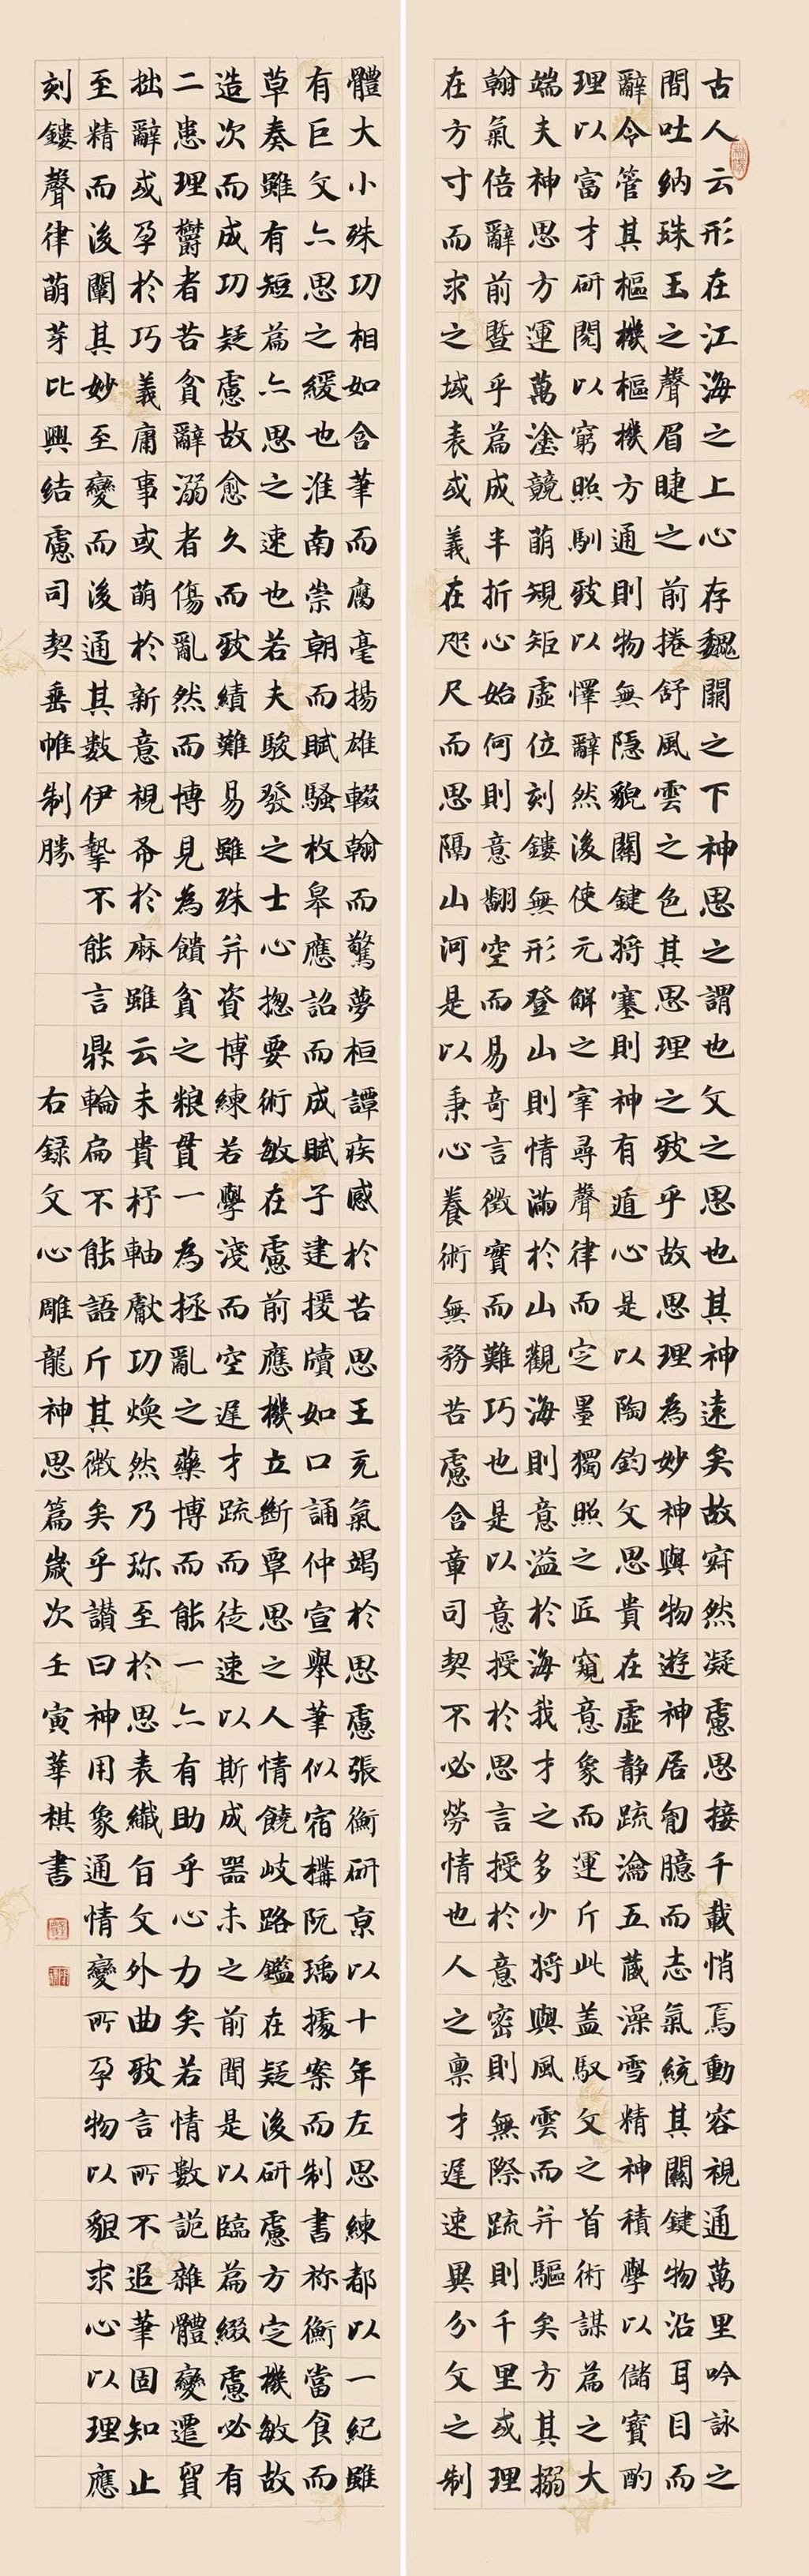 古人云形在江海之上心存魏闕之下神思之謂也文之思也其神遠矣故寂然凝慮思接千載悄焉動容視通萬里吟詠之
間吐納珠玉之聲眉睫之前捲舒風雲之色其思理之致乎故思理為妙神與物遊神居匈臆而志氣統其關鍵物沿耳目而
辭令管其樞機樞機方通則物無隱貌關鍵將塞則神有遁心是以陶鈞文思貴在虛靜疏瀹五藏澡雪精神積學以儲寶酌
理以富才研閱以窮照馴致以懌辭然後使元解之宰尋聲律而定墨獨照之匠窺意象而運斤此蓋馭文之首術謀篇之大
端夫神思方運萬塗競萌規矩虛位刻鏤無形登山則情滿於山觀海則意溢於海我才之多少將與風雲而并驅矣方其搦
翰氣倍辭前暨乎篇成半折心始何則意翻空而易奇言徵實而難巧也是以意授於思言授於意密則無際疏則千里或理
在方寸而求之域表或義在咫尺而思隔山河是以秉心養術無務苦慮含章司契不必勞情也人之稟才遲速異分文之制
體大小殊功相如含筆而腐毫揚雄輟翰而驚夢桓譚疾感於苦思王充氣竭於思慮張衡研京以十年左思練都以一紀雖
有巨文亦思之緩也淮南崇朝而賦騷枚皋應詔而成賦子建援牘如口誦仲宣舉筆似宿構阮瑀據案而制書禰衡當食而
草奏雖有短篇亦思之速也若夫駿發之士心揔要術敏在慮前應機立斷覃思之人情饒岐路鑑在疑後研慮方定機敏故
造次而成功疑慮故愈久而致績難易雖殊并資博練若學淺而空遲才疏而徒速以斯成器未之前聞是以臨篇綴慮必有
二患理鬱者苦貧辭溺者傷亂然而博見為饋貧之粮貫一為拯亂之藥博而能一亦有助乎心力矣若情數詭雜體變遷貿
拙辭或孕於巧義庸事或萌於新意視布於麻雖云未貴杼軸獻功煥然乃珍至於思表纖旨文外曲致言所不追筆固知止
至精而後闡其妙至變而後通其數伊摯不能言鼎輪扁不能語斤其微矣乎讚曰神用象通情變所孕物以貌求心以理應
刻鏤聲律萌芽比興結慮司契垂帷制勝 右録文心雕龍神思篇歲次壬寅華棋書